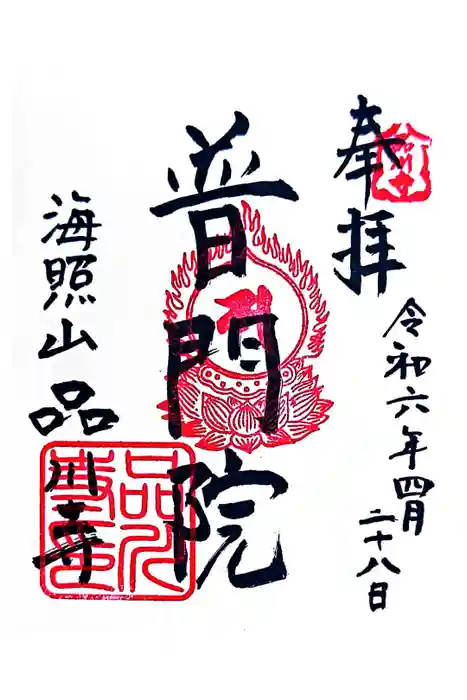 奉拝
令和六年四月
二十八日
普門院
海照山
品川寺